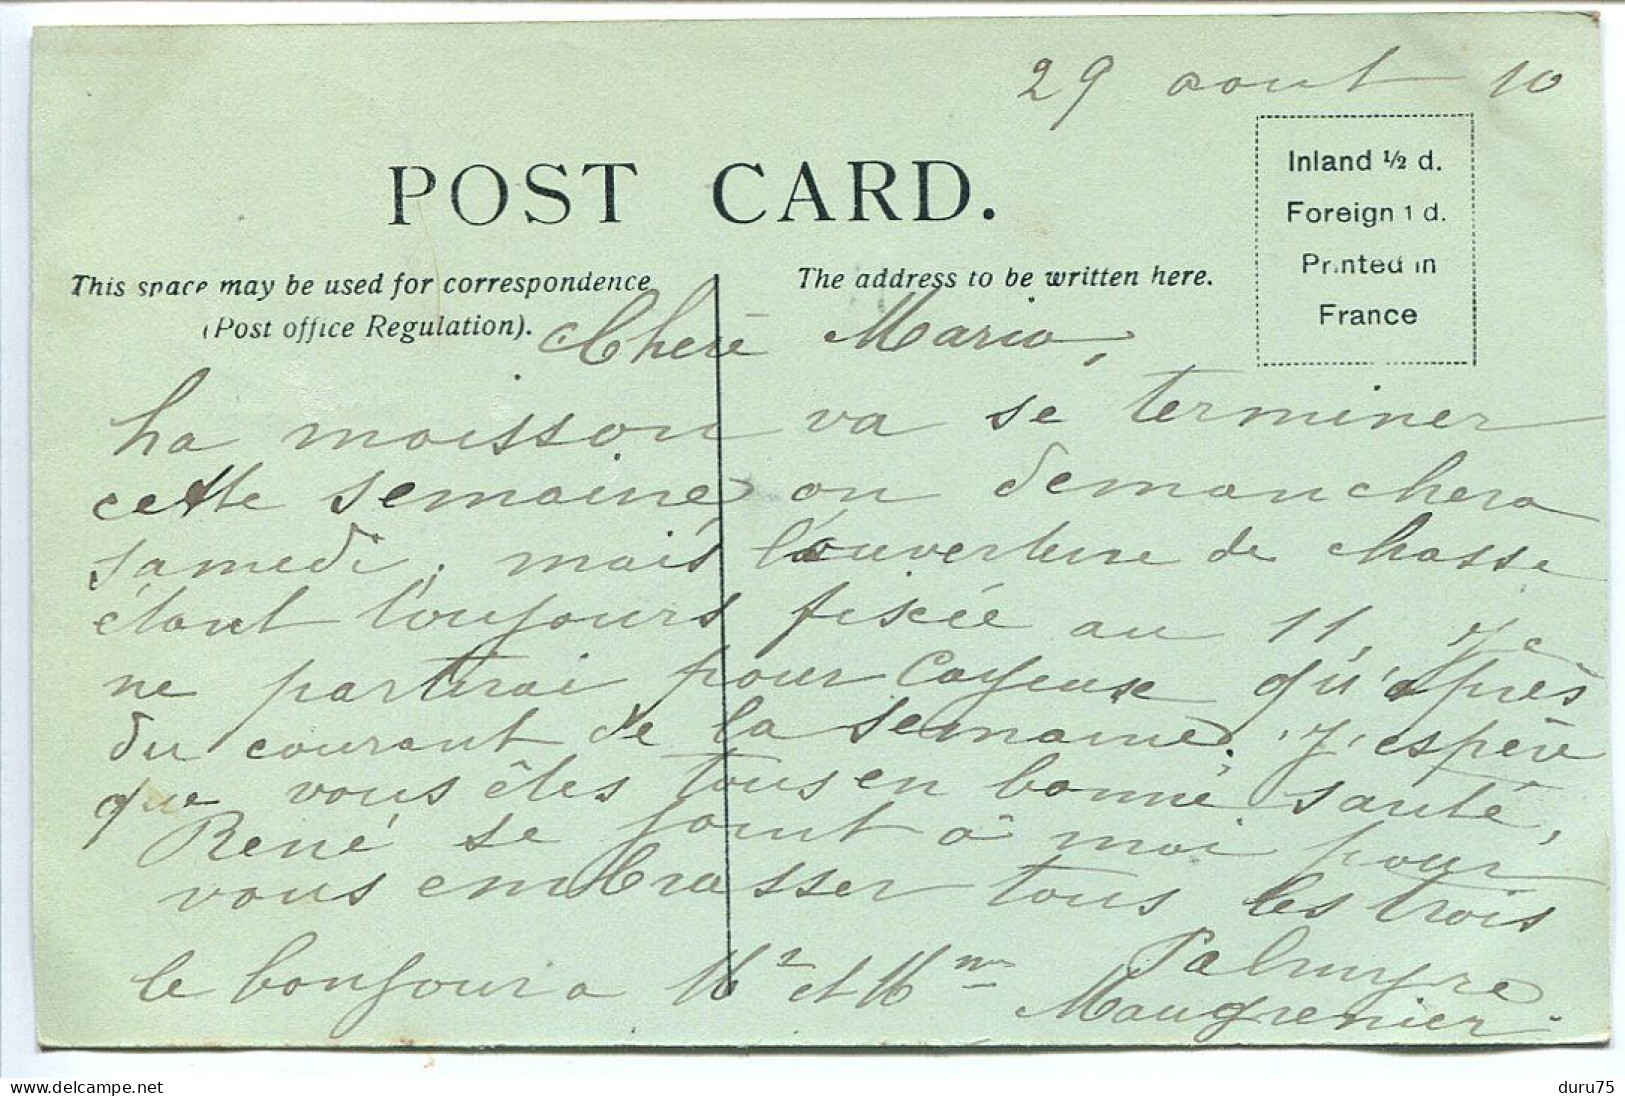 29 aout 10
POST CARD.
Inland ½ d.
Foreign 1 d.
Printed in
France
This space may be used for correspondence
(Post office Regulation).
The address to be written here.
Chère Maria,
La moisson va se terminer
cette semaine on demanchera
samedi, mais l'ouverture de chasse
étant toujours fixée au 11, je
ne partirai pour Cayeux qu'après
du courant de la semaine. J'espère
que vous êtes tous en bonne santé,
René se joint à moi pour
vous embrasser tous les trois
Palmyre
le bonjour a Mr et Mme Maugrenier.
delcampe.net
duru75